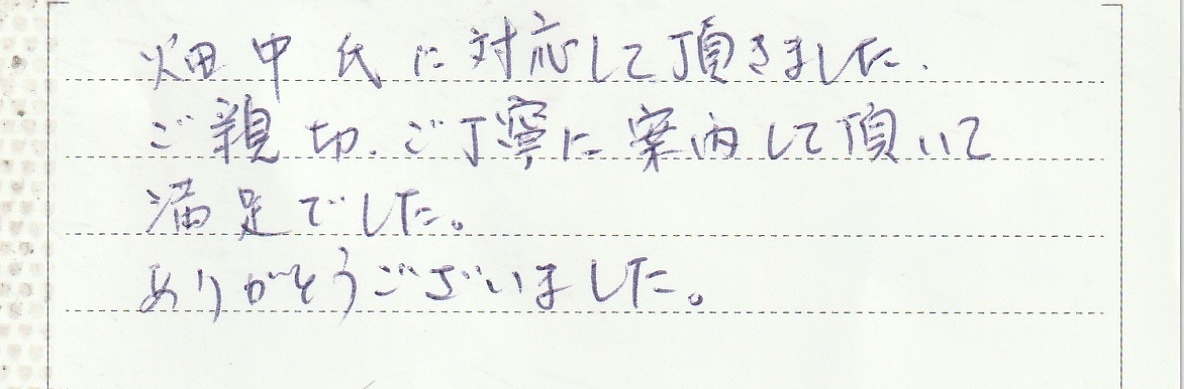 畑中氏に対応して頂きました.
ご親切、ご丁寧に案内して頂いて
満足でした。
ありがとうございました。